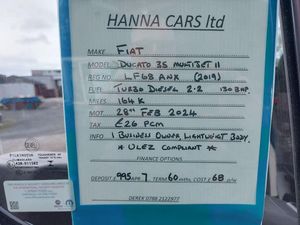 HANNA CARS ltd
MAKE: FIAT
MODEL: DUCATO 35 MULTIJET II
REG NO: LF68 ANX (2019)
FUEL: TURBO DIESEL 2.2 130 BHP
MILES: 164K
MOT: 28TH FEB 2024
TAX: £26 PCM
INFO: 1 BUSINESS OWNER, LIGHTWEIGHT BODY.
* ULEZ COMPLIANT *
FINANCE OPTIONS
DEPOSIT £995 APR 7 TERM 60 mths COST £68 p/w
DEREK 0788 2122977
PILKINGTON